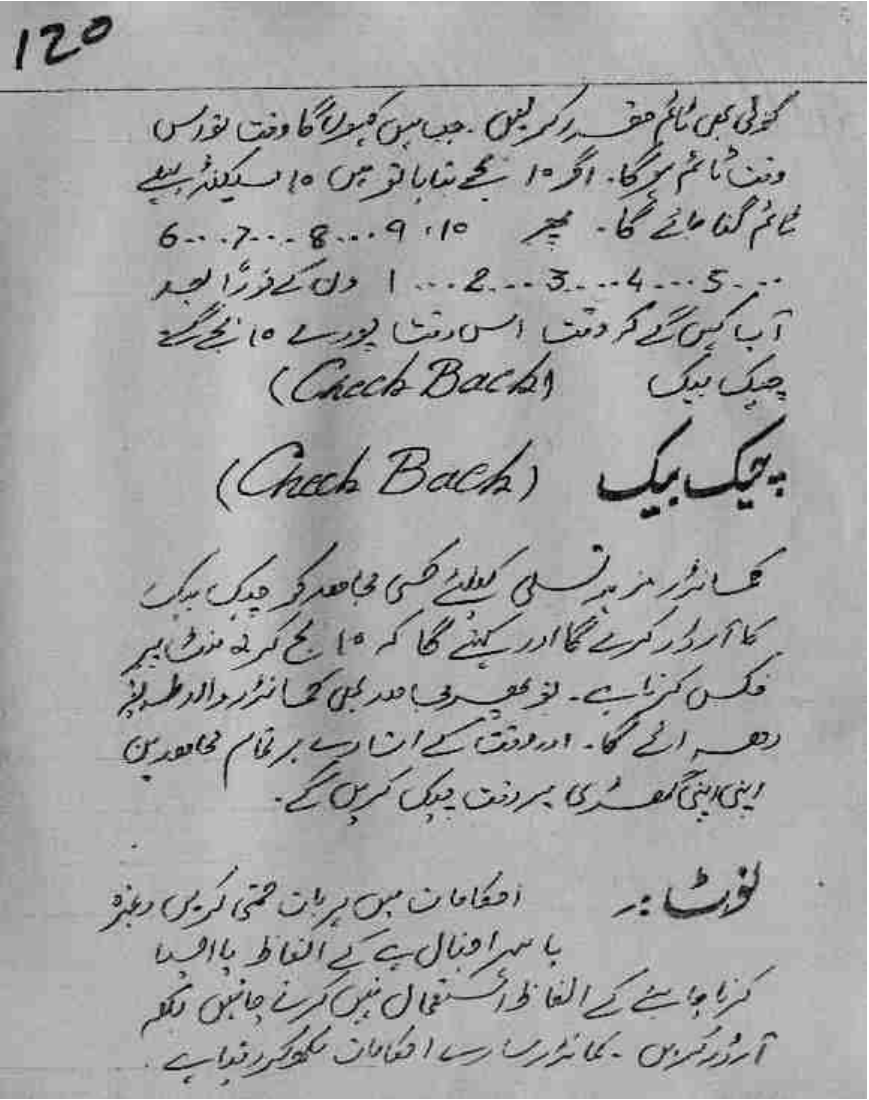 120
کوئی بھی ٹائم مقرر کر لیں۔ جب میں کہوں گا وقت تو اس
وقت ٹائم ہو گا۔ اگر 10 بجے بتایا تو میں 10 سیکنڈ پہلے
ٹائم گنا جائے گا۔ پھر 10، 9....8....7....6
....5....4....3....2....1 ون کے فورًا بعد
آپ کہیں گے کہ وقت اس وقت پورے 10 بجے گے
چیک بیک (Check Back)
چیک بیک (Check Back)
کمانڈر مزید تسلی کیلئے کسی مجاھد کو چیک بیک
کا آرڈر کرے گا اور کہے گا کہ 10 بج کر منٹ پر
فکس کرنا ہے۔ تو پھر مجاھد بھی کمانڈر والا طریقہ
دھرائے گا۔ اور وقت کے اشارے پر تمام مجاھدین
اپنی اپنی گھڑی پر وقت چیک کریں گے۔
نوٹ:۔ احکامات میں ہر بات حتمی کریں وغیرہ
یا میرا خیال ہے کے الفاظ یا ایسا
کرنا چاہیئے کے الفاظ استعمال نہیں کرنے چاہئیں بلکہ
آرڈر کریں۔ کمانڈر سارے احکامات لکھ کر دیتا ہے۔